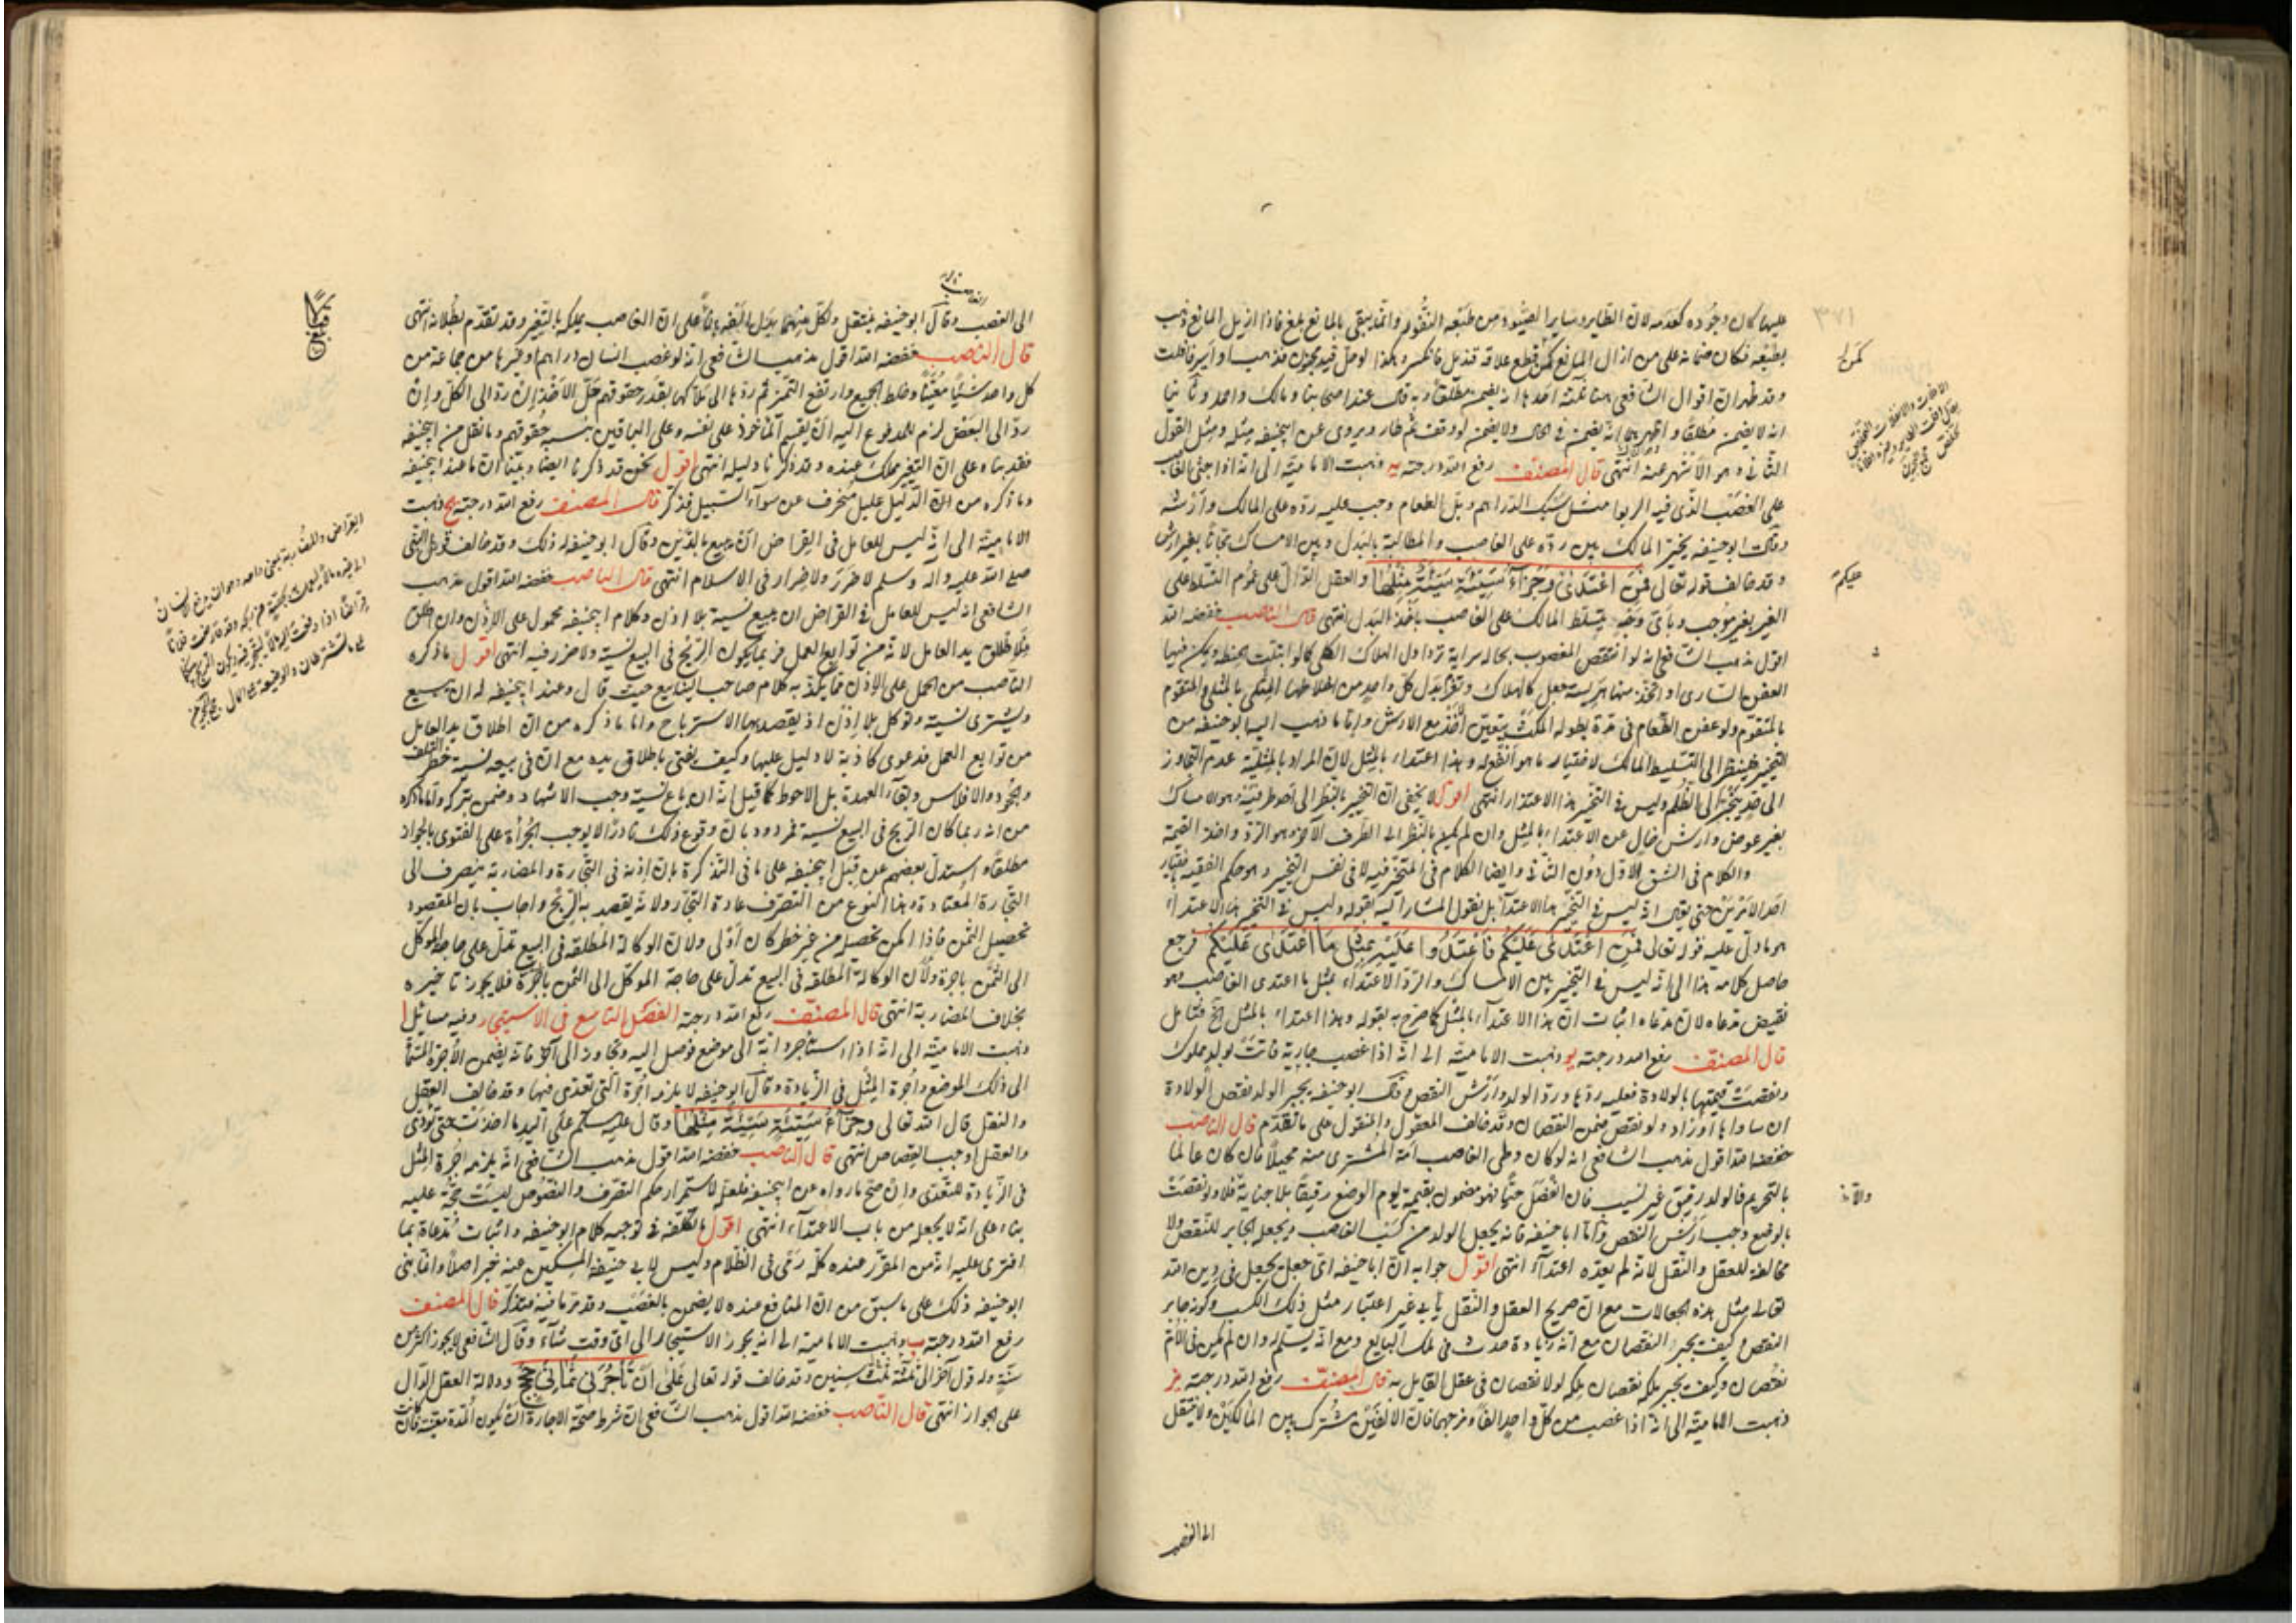 عليها كان وجوده كعدمه لان الطاير وساير الصيود من طبعه النفور وانما يبقى بالمانع فاذا ازيل المانع ذهب
بطبعه فكان ضمانه على من ازال المانع كمن قطع علاقة قنديل فانكسر وهكذا لو حل قيد مجنون فذهب او اسير فافلت
وقد ظهر ان اقوال الشافعي هنا ثلثة احدها انه يضمن مطلقا وبه قال عند اصحابنا ومالك واحمد وثانيها
انه لا يضمن مطلقا واظهرها انه يضمن في الحال ولا يضمن لو وقف ثم طار ويروى عن ابيحنيفه مثله ومثل القول
الثاني وهو الاشهر عنه انتهى قال المصنف رفع الله درجته يه ذهبت الامامية الى انه اذا جنى الغاصب
على الغصب الذي فيه الربوا مثل سبك الدراهم وبل الطعام وجب عليه رده على المالك وارشه
وقال ابو حنيفه يخير المالك بين رده على الغاصب والمطالبة بالبدل وبين الامساك مجانا بغير ارش
وقد خالف قوله تعالى فمن اعتدى وجزاء سيئة سيئة مثلها والعقل الدال على عموم التسلط على
الغير بغير موجب وباي وجه يتسلط المالك على الغاصب باخذ البدل انتهى قال الناصب خفضه الله
اقول مذهب الشافعي انه لو انتقص المغصوب بحاله سراية تزاول الهلاك الكلي كما لو ابتلت الحنطة وتمكن فيها
العفن الساري او اتخذ منها هريسة جعل كالهلاك وتغرم بدل كل واحد من اخلاطها المثلي بالمثلي والمتقوم
بالمتقوم ولو عفن الطعام في مدة بطوله المكث يتعين اخذه مع الارش واما ما ذهب اليه ابو حنيفه من
التخيير فينظر الى التسليط المالك لاختيار ما هو انفع له وهذا اعتداء بالمثل لان المراد بالمثلية عدم التجاوز
الى حد ينجر الى الظلم وليس في التخيير هذا الاعتداء انتهى اقول لا يخفى ان التخيير بالنظر الى احد طرفيه وهو الامساك
بغير عوض وارش خال عن الاعتداء بالمثل وان لم يكن بالنظر الى الطرف الآخر وهو الرد واخذ القيمة
والكلام في الشق الاول دون الثاني وايضا الكلام في المتخير فيه لا في نفس التخيير وهو حكم الفقيه باختيار
احد الامرين حتى يقال انه ليس في التخيير هذا الاعتداء بل نقول المشار اليه بقوله وليس في التخيير هذا الاعتداء
هو ما دل عليه قوله تعالى فمن اعتدى عليكم فاعتدوا عليه بمثل ما اعتدى عليكم فرجع
حاصل كلامه هذا الى انه ليس في التخيير بين الامساك والرد الاعتداء بمثل ما اعتدى الغاصب وهو
نقيض مدعاه لان مدعاه اثبات ان هذا الاعتداء بالمثل كما صرح به بقوله وهذا اعتداء بالمثل الخ فتامل
قال المصنف رفع الله درجته يو ذهبت الامامية الى انه اذا غصب جارية فاتت بولد مملوك
ونقصت قيمتها بالولادة فعليه ردها ورد الولد وارش النقص وقال ابو حنيفه يجبر الولد نقص الولادة
ان ساواها او زاد ولو نقص ضمن النقصان وقد خالف المعقول والمنقول على ما تقدم قال الناصب
خفضه الله اقول مذهب الشافعي انه لو كان وطي الغاصب امة المشتري منه محبلا فان كان عالما
بالتحريم فالولد رقيق غير نسيب فان انفصل حيا فهو مضمون بقيمة يوم الوضع رقيقا بلا جناية فلو نقصت
بالوضع وجب ارش النقص واما ابا حنيفه فانه يجعل الولد من كسب الغاصب ويجعله الجابر للنقص ولا
مخالفة للعقل والنقل لانه لم يعده اعتداء انتهى اقول جوابه ان ابا حنيفه اي جعل يجعل في دين الله
تعالى مثل هذه الجعالات مع ان صريح العقل والنقل يأبى غير اعتبار مثل ذلك الكسب وكونه جابر
النقص وكيف يجبر النقصان مع انه زيادة حدث في ملك البايع ومع انه يستلمه وان لم يكن في الام
نقصان وكيف يجبر ملكه نقصان ملكه لولا نقصان في عقل القايل به قال المصنف رفع الله درجته يز
ذهبت الامامية الى انه اذا غصب من كل واحد الفا ومزجهما فان الالفين مشترك بين المالكين ولا ينتقل
الى الغصب
٣٧١
كمن
عليكم
ولانه
الى الغصب وقال ابو حنيفه ينتقل ولكل منهما بدل الفه بناء على ان الغاصب يملكه بالتغير وقد تقدم بطلانه انتهى
قال الناصب خفضه الله اقول مذهب الشافعي انه لو غصب انسان دراهم وغيرها من جماعة من
كل واحد شيئا معينا وخلط الجميع وارتفع التميز ثم ردها الى ملاكها بقدر حقوقهم حل الاخذ ان رد الى الكل وان
رد الى البعض لزم للمدفوع اليه ان يقسم المأخوذ على نفسه وعلى الباقين بنسبة حقوقهم وما نقل من ابيحنيفه
فقد بناه على ان التغير مملك عنده وقد ذكرنا دليله انتهى اقول نحن قد ذكرنا ايضا وبينا ان ما عند ابيحنيفه
وما ذكره من ان الدليل عليل منحرف عن سواء السبيل فتذكر قال المصنف رفع الله درجته يح ذهبت
الامامية الى انه ليس للعامل في القراض ان يبيع بالدين وقال ابو حنيفه له ذلك وقد خالف قول النبي
صلى الله عليه واله وسلم لا ضرر ولا ضرار في الاسلام انتهى قال الناصب خفضه الله اقول مذهب
الشافعي انه ليس للعامل في القراض ان يبيع نسية بلا اذن وكلام ابيحنيفه محمول على الاذن وان اطلق
فلاطلاق يد العامل لانه من توابع العمل فربما يكون الربح في البيع نسية ولا ضرر فيه انتهى اقول ما ذكره
الناصب من الحمل على الاذن مما يكذبه كلام صاحب الينابيع حيث قال وعند ابيحنيفه له ان يبيع
ويشتري نسية وتوكل بلا اذن اذ يقصد بها الاسترباح واما ما ذكره من ان اطلاق يد العامل
من توابع العمل فدعوى كاذبة لا دليل عليها وكيف يفتى باطلاق يده مع ان في بيعه نسية خطر التلف
والجحود والافلاس وبقاء العهدة بل الاحوط كما قيل انه ان باع نسية وجب الاشهاد وضمن بتركه واما ما ذكره
من انه ربما كان الربح في البيع نسية فمردود بان وقوع ذلك نادرا لا يوجب الجرأة على الفتوى بالجواز
مطلقا واستدل بعضهم عن قبل ابيحنيفه على ما في التذكرة بان اذنه في التجارة والمضاربة ينصرف الى
التجارة المعتادة وهذا النوع من التصرف عادة التجار ولانه يقصد به الربح واجاب بان المقصود
تحصيل الثمن فاذا امكن تحصيله من غير خطر كان اولى ولان الوكالة المطلقه في البيع تدل على حاجة الموكل
الى الثمن باجرة ولان الوكالة المطلقه في البيع تدل على حاجة الموكل الى الثمن باجرة فلا يجوز تاخيره
بخلاف المضاربة انتهى قال المصنف رفع الله درجته الفصل التاسع في الاستيجار وفيه مسائل ا
ذهبت الامامية الى انه اذا استاجر دابة الى موضع فوصل اليه وتجاوز الى آخر فانه يضمن الاجرة المسماة
الى ذلك الموضع واجرة المثل في الزيادة وقال ابو حنيفه لا يلزمه اجرة التي تعدى فيها وقد خالف العقل
والنقل قال الله تعالى وجزاء سيئة سيئة مثلها وقال عليه السلام على اليد ما اخذت حتى تؤدي
والعقل اوجب القصاص انتهى قال الناصب خفضه الله اقول مذهب الشافعي انه يلزمه اجرة المثل
في الزيادة للتعدي وان صح ما رواه عن ابيحنيفه فلعله لاستمرار حكم التصرف والنصوص ليست حجة عليه
بناء على انه لا يجعله من باب الاعتداء انتهى اقول ما تكلفه في توجيه كلام ابو حنيفه واثبات مدعاه بما
افترى عليه انه من المقرر عنده كله رمى في الظلام وليس لابي حنيفة المسكين عنه خبر اصلا وانما بنى
ابو حنيفه ذلك على ما سبق من ان المنافع عنده لا يضمن بالغصب وقد مر ما فيه فتذكر قال المصنف
رفع الله درجته ب ذهبت الامامية الى انه يجوز الاستيجار الى اي وقت شاء وقال الشافعي لا يجوز اكثر من
سنة وله قول آخر الى ثلثة ثلث سنين وقد خالف قوله تعالى على ان تأجرني ثماني حجج ودلالة العقل الدال
على الجواز انتهى قال الناصب خفضه الله اقول مذهب الشافعي ان شرط صحة الاجارة ان يكون المدة معينة فان كانت